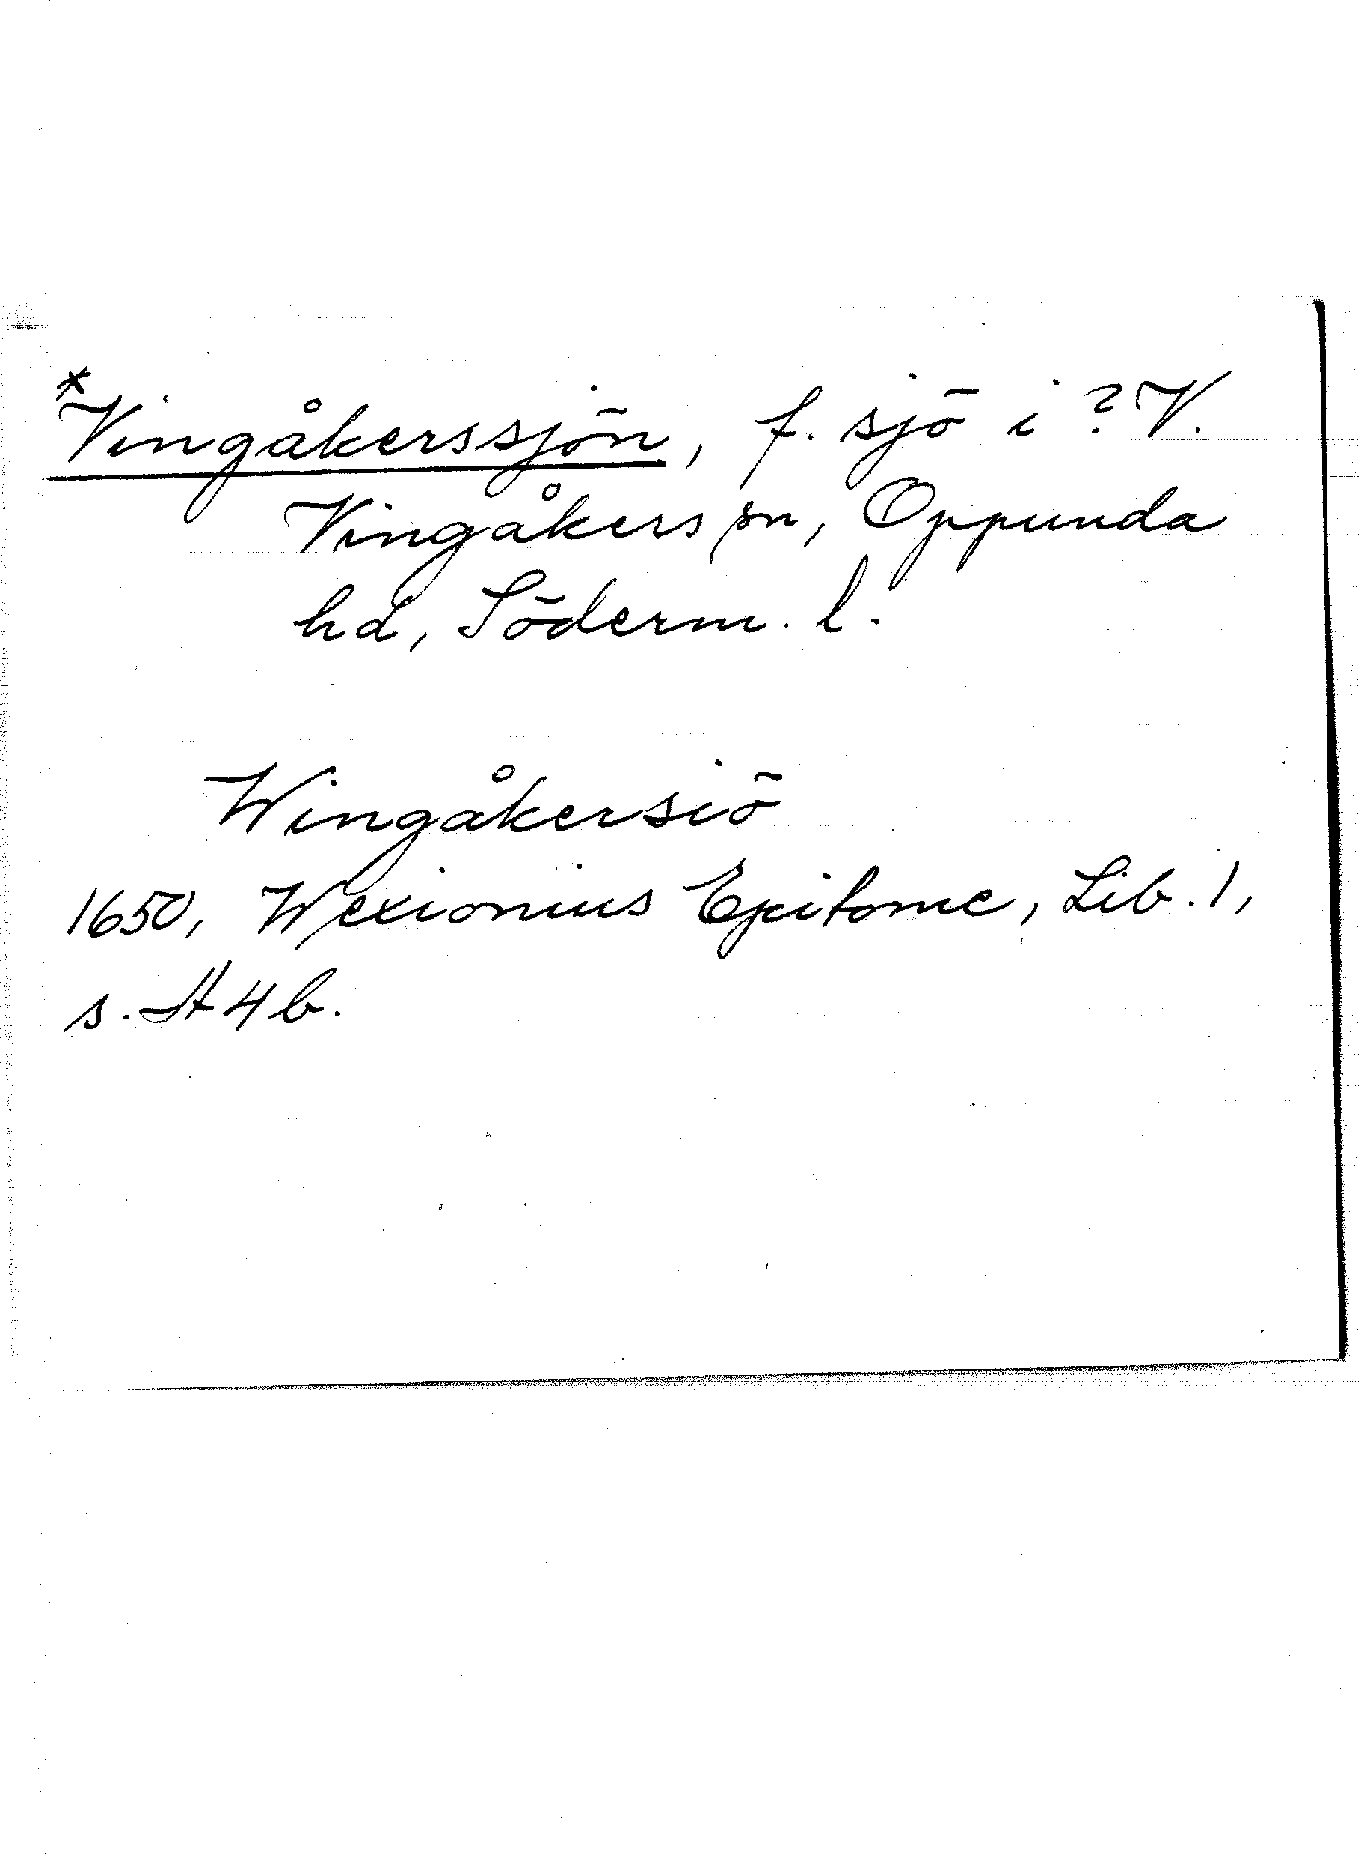 *Vingåkerssjön, f. sjö i ? V.
Vingåkers sn, Oppunda
hd, Söderm. l.
Wingåkersiö
1650, Wexionius Epitome, Lib. 1,
s. A 4 b.